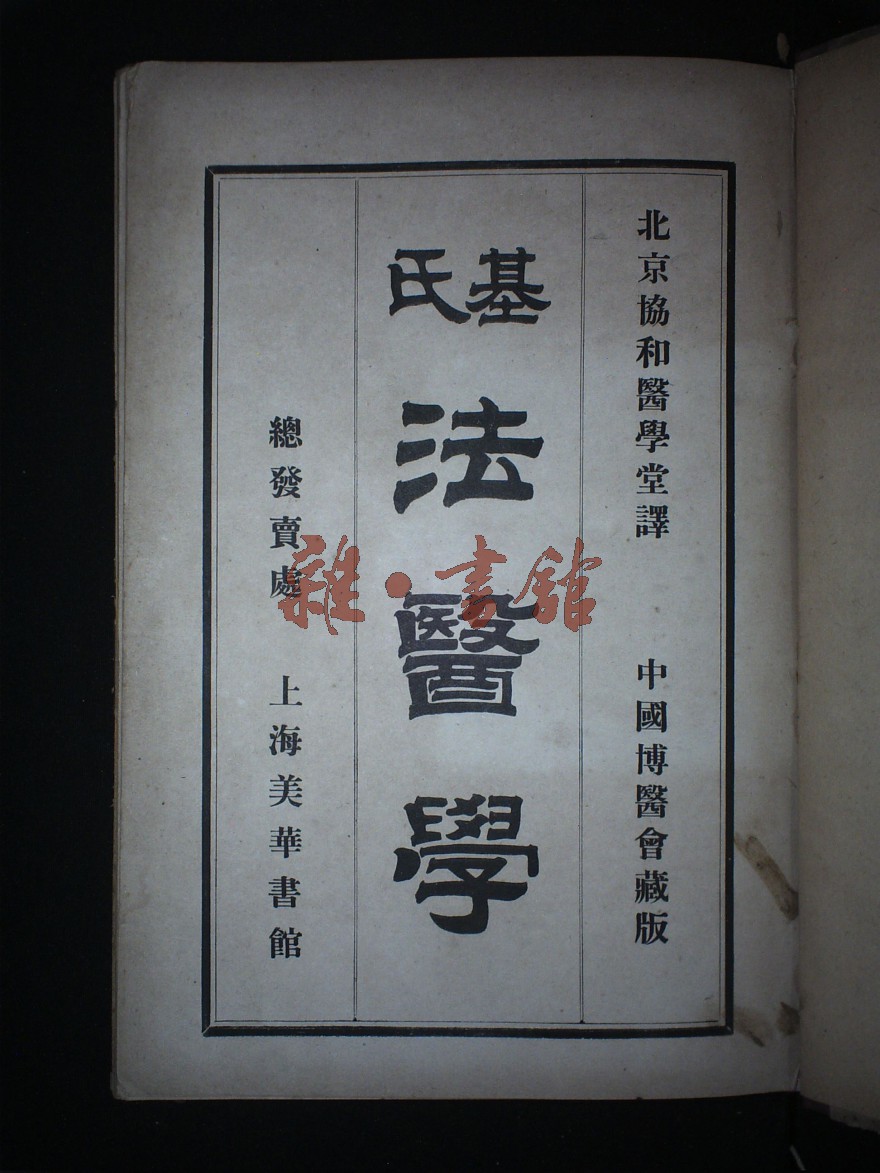 北京協和醫學堂譯　中國博醫會藏版
基氏
法醫學
總發賣處　上海美華書館
雜·書館